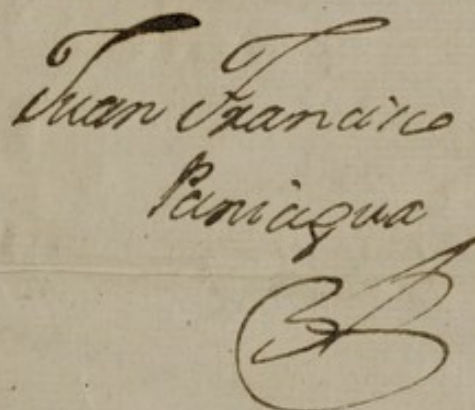 Juan Francisco
Paniagua